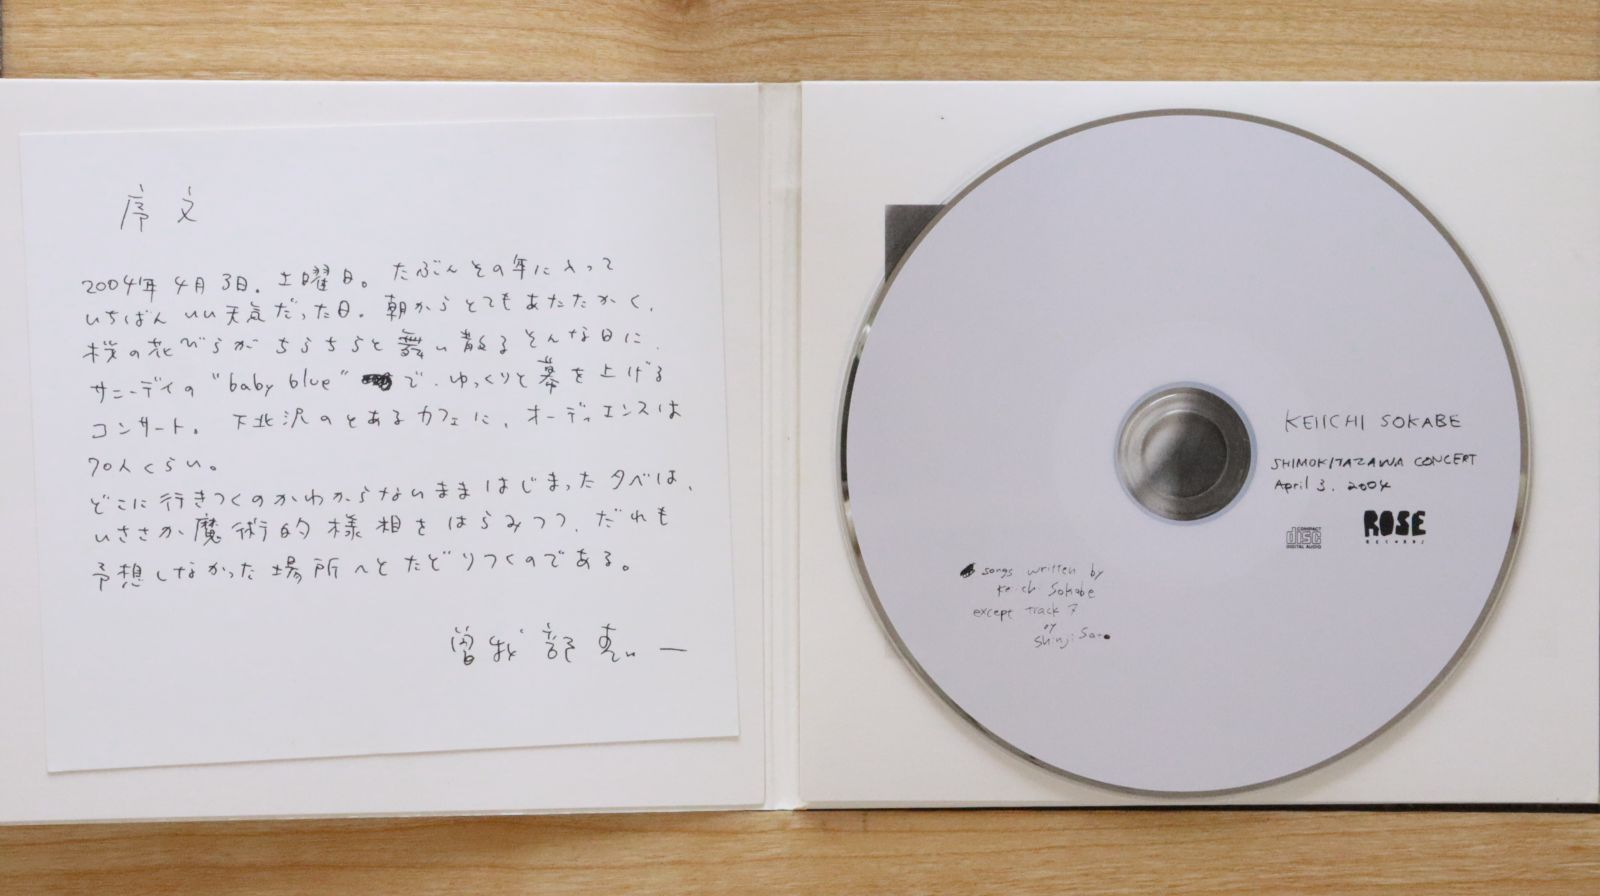 序文
2004年4月3日。土曜日。たぶんその年に入って
いちばんいい天気だった日。朝からとてもあたたかく、
桜の花びらがちらちらと舞い散るそんな日に、
サニーデイの"baby blue"で、ゆっくりと幕を上げる
コンサート。下北沢のとあるカフェに、オーディエンスは
70人くらい。
どこに行きつくのかわからないままはじまった夕べは、
いささか魔術的様相をはらみつつ、だれも
予想しなかった場所へとたどりつくのである。
曽我部恵一
KEIICHI SOKABE
SHIMOKITAZAWA CONCERT
April 3. 2004
COMPACT
disc
DIGITAL AUDIO
ROSE
RECORDS
songs written by
Keiichi Sokabe
except track 7
by
Shinji Sato